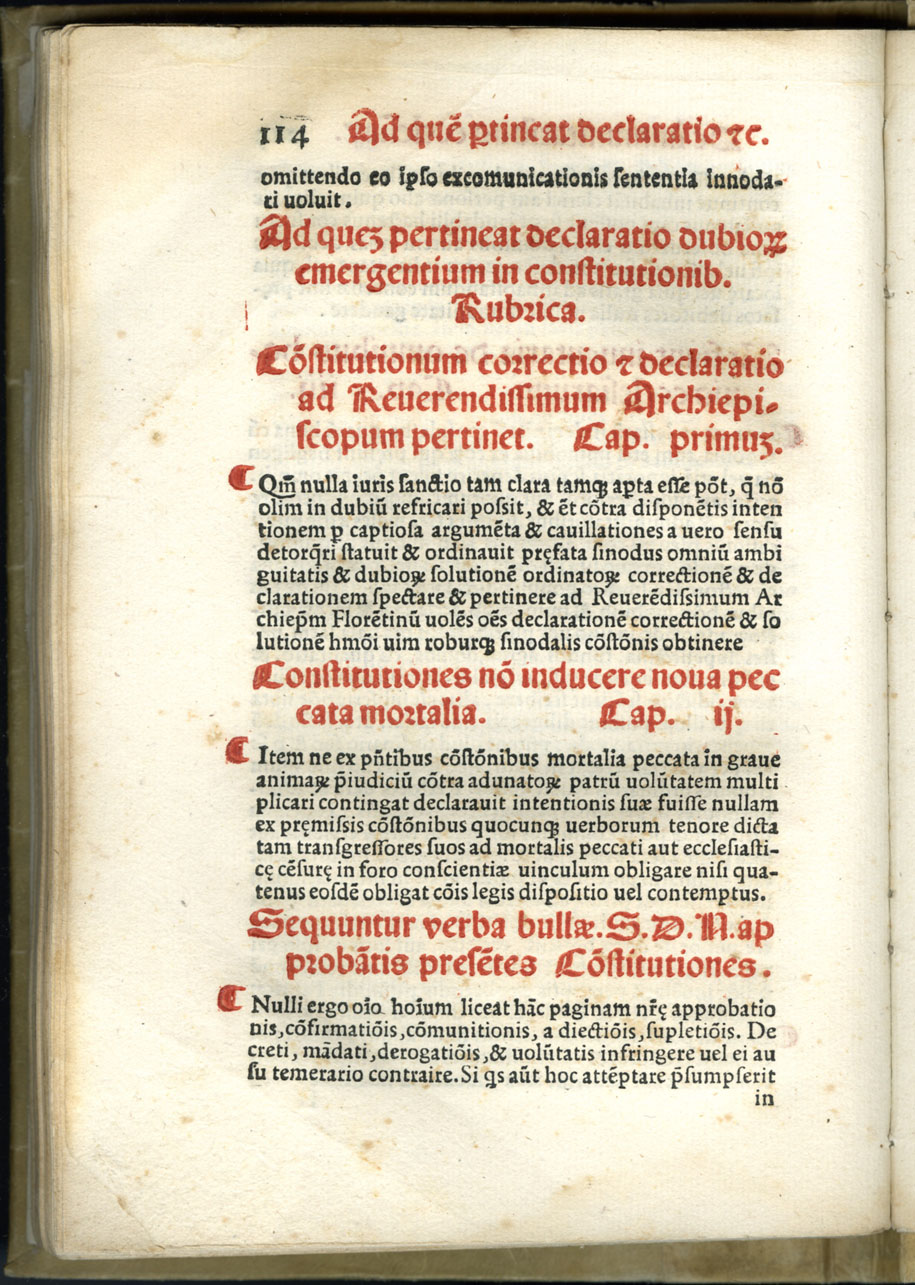 114 Ad quē ꝑtineat declaratio ⁊c.
omittendo eo ipſo excomunicationis ſententia innoda-
ti uoluit.
Ad queꝫ pertineat declaratio dubioꝝ
emergentium in conſtitutionib.
Rubrica.
Cōſtitutionum correctio ⁊ declaratio
ad Reuerendiſſimum Archiepi-
ſcopum pertinet. Cap. primuꝫ.
Qm̄ nulla iuris ſanctio tam clara tamqꝫ apta eſſe pōt, q̄ nō
olim in dubiū refricari poſsit, & ēt cōtra diſponētis inten
tionem ꝑ captioſa argumēta & cauillationes a uero ſenſu
detorq̄ri ſtatuit & ordinauit pręfata ſinodus omniū ambi
guitatis & dubioꝝ ſolutionē ordinatoꝝ correctionē & de
clarationem ſpectare & pertinere ad Reuerēdiſsimum Ar
chiep̄m Florētinū uolēs oēs declarationē correctionē & ſo
lutionē hmōi uim roburqꝫ ſinodalis cōſtōnis obtinere
Conſtitutiones nō inducere noua pec
cata mortalia. Cap. ij.
Item ne ex pn̄tibus cōſtōnibus mortalia peccata in graue
animaꝝ p̄iudiciū cōtra adunatoꝝ patrū uolūtatem multi
plicari contingat declarauit intentionis ſuæ fuiſſe nullam
ex pręmiſsis cōſtōnibus quocunqꝫ uerborum tenore dicta
tam tranſgreſſores ſuos ad mortalis peccati aut eccleſiaſti-
cę cēſurę in foro conſcientiæ uinculum obligare niſi qua-
tenus eoſdē obligat cōis legis diſpoſitio uel contemptus.
Sequuntur verba bullæ. S. D. N. ap
probātis preſētes Cōſtitutiones.
Nulli ergo oīo hoīum liceat hāc paginam nr̄ę approbatio
nis, cōfirmatiōis, cōmunitionis, a diectiōis, ſupletiōis. De
creti, mādati, derogatiōis, & uolūtatis infringere uel ei au
ſu temerario contraire. Si qs aūt hoc attēptare p̄ſumpſerit
in